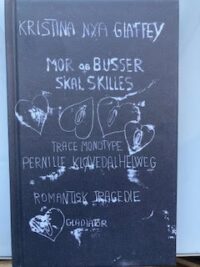 KRISTINA NYA GIAFFEY
MOR OG BUSSER
SKAL SKILLES
TRACE MONOTYPE
PERNILLE KLØVEDAL HELWEG
ROMANTISK TRAGEDIE
GLADIATOR